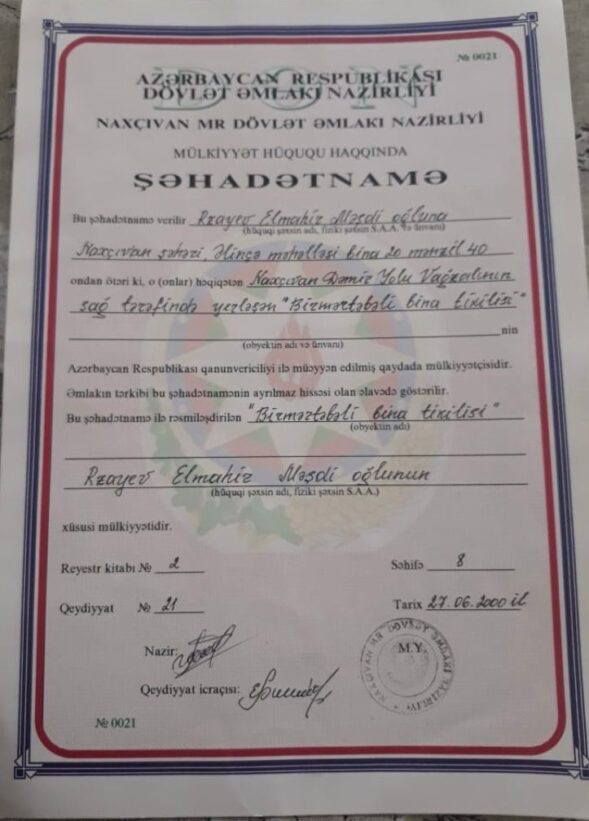 № 0021
AZƏRBAYCAN RESPUBLİKASI
DÖVLƏT ƏMLAKI NAZİRLİYİ
NAXÇIVAN MR DÖVLƏT ƏMLAKI NAZİRLİYİ
MÜLKİYYƏT HÜQUQU HAQQINDA
ŞƏHADƏTNAMƏ
Bu şəhadətnamə verilir Rzayev Elmahir Məşdi oğluna
(hüquqi şəxsin adı, fiziki şəxsin S.A.A. və ünvanı)
Naxçıvan şəhəri, Əlincə məhəlləsi bina 20 mənzil 40
ondan ötəri ki, o (onlar) həqiqətən Naxçıvan Dəmir Yolu Vağzalının
sağ tərəfində yerləşən "Birmərtəbəli bina tikilisi"
nin
(obyektin adı və ünvanı)
Azərbaycan Respublikası qanunvericiliyi ilə müəyyən edilmiş qaydada mülkiyyətçisidir.
Əmlakın tərkibi bu şəhadətnamənin ayrılmaz hissəsi olan əlavədə göstərilir.
Bu şəhadətnamə ilə rəsmiləşdirilən "Birmərtəbəli bina tikilisi"
(obyektin adı)
Rzayev Elmahir Məşdi oğlunun
(hüquqi şəxsin adı, fiziki şəxsin S.A.A.)
xüsusi mülkiyyətidir.
Reyestr kitabı № 2 Səhifə 8
Qeydiyyat № 21 Tarix 27.06.2000 il
Nazir:
M.Y.
NAXÇIVAN MR DÖVLƏT ƏMLAKI NAZİRLİYİ
Qeydiyyat icraçısı:
№ 0021